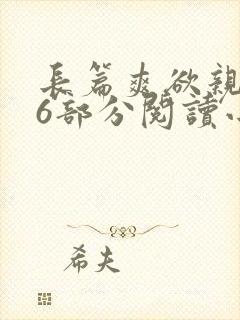 長篇爽欲親
6部分閱讀小
希夫